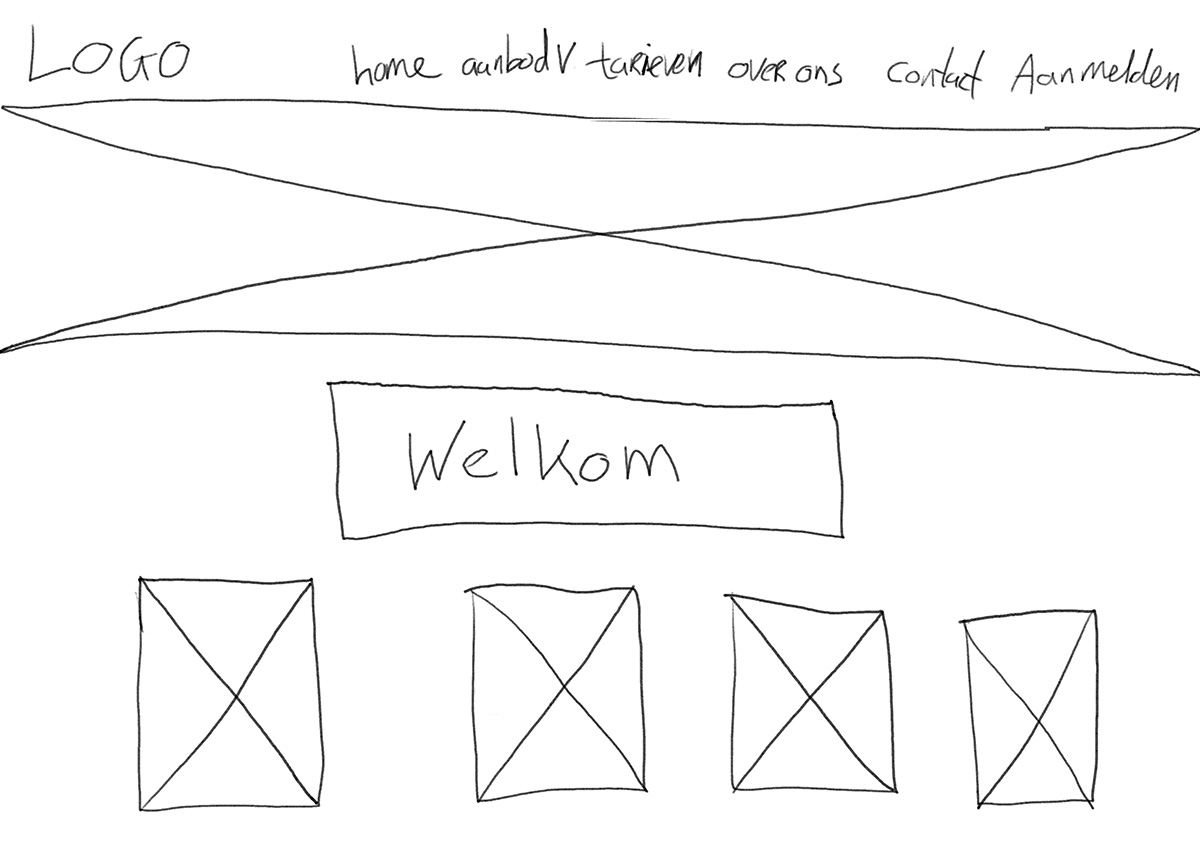 LOGO home aanbod V tarieven over ons contact Aanmelden
Welkom